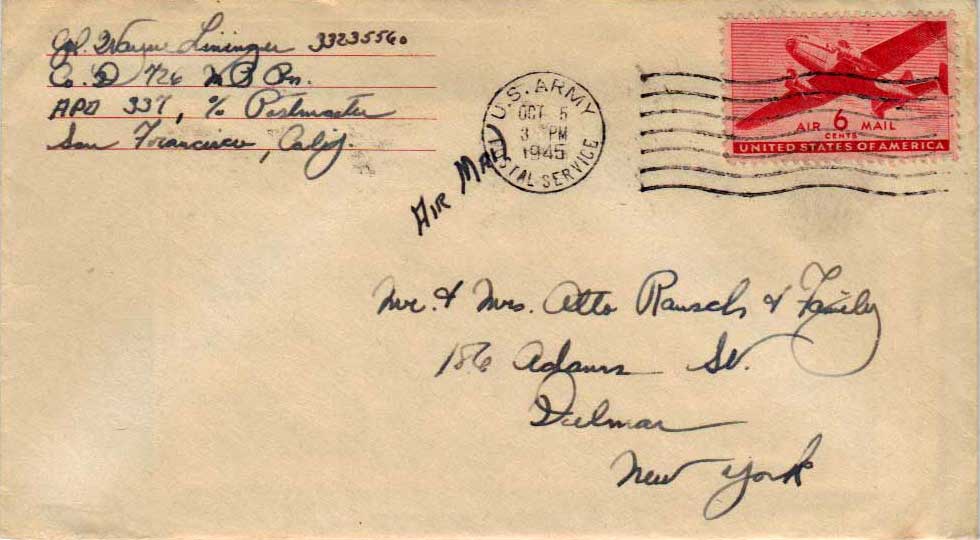 Cpl. Wayne Lininger 33235560
Co. D 726 M P Bn.
APO 331, c/o Postmaster
San Francisco, Calif.
U.S. ARMY
OCT 5
3 PM
1945
POSTAL SERVICE
AIR 6 MAIL
CENTS
UNITED STATES OF AMERICA
AIR MAIL
Mr. & Mrs. Otto Rausch & Family
186 Adams St.
Delmar
New York